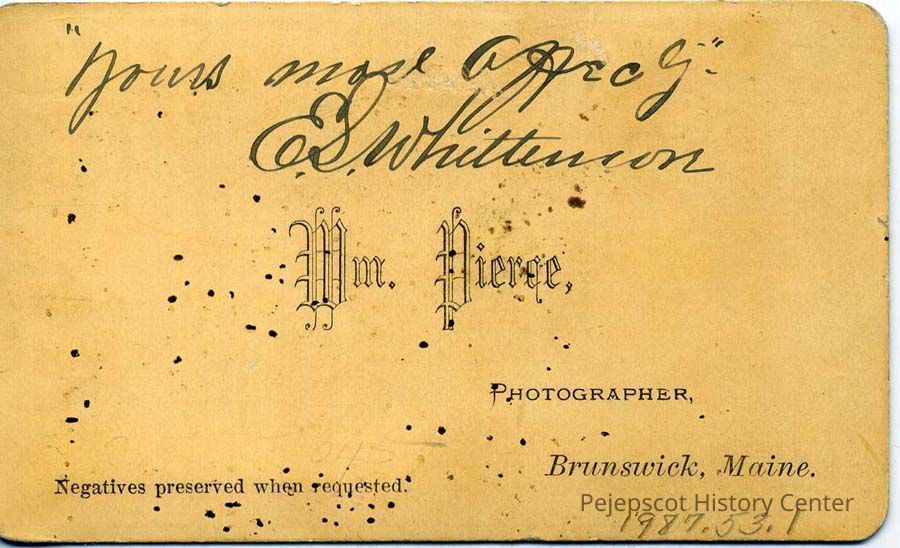 "Yours most Affecly".
E.S. Whittemon
Wm. Pierce,
PHOTOGRAPHER,
Brunswick, Maine.
Negatives preserved when requested.
Pejepscot History Center
1987.53.1